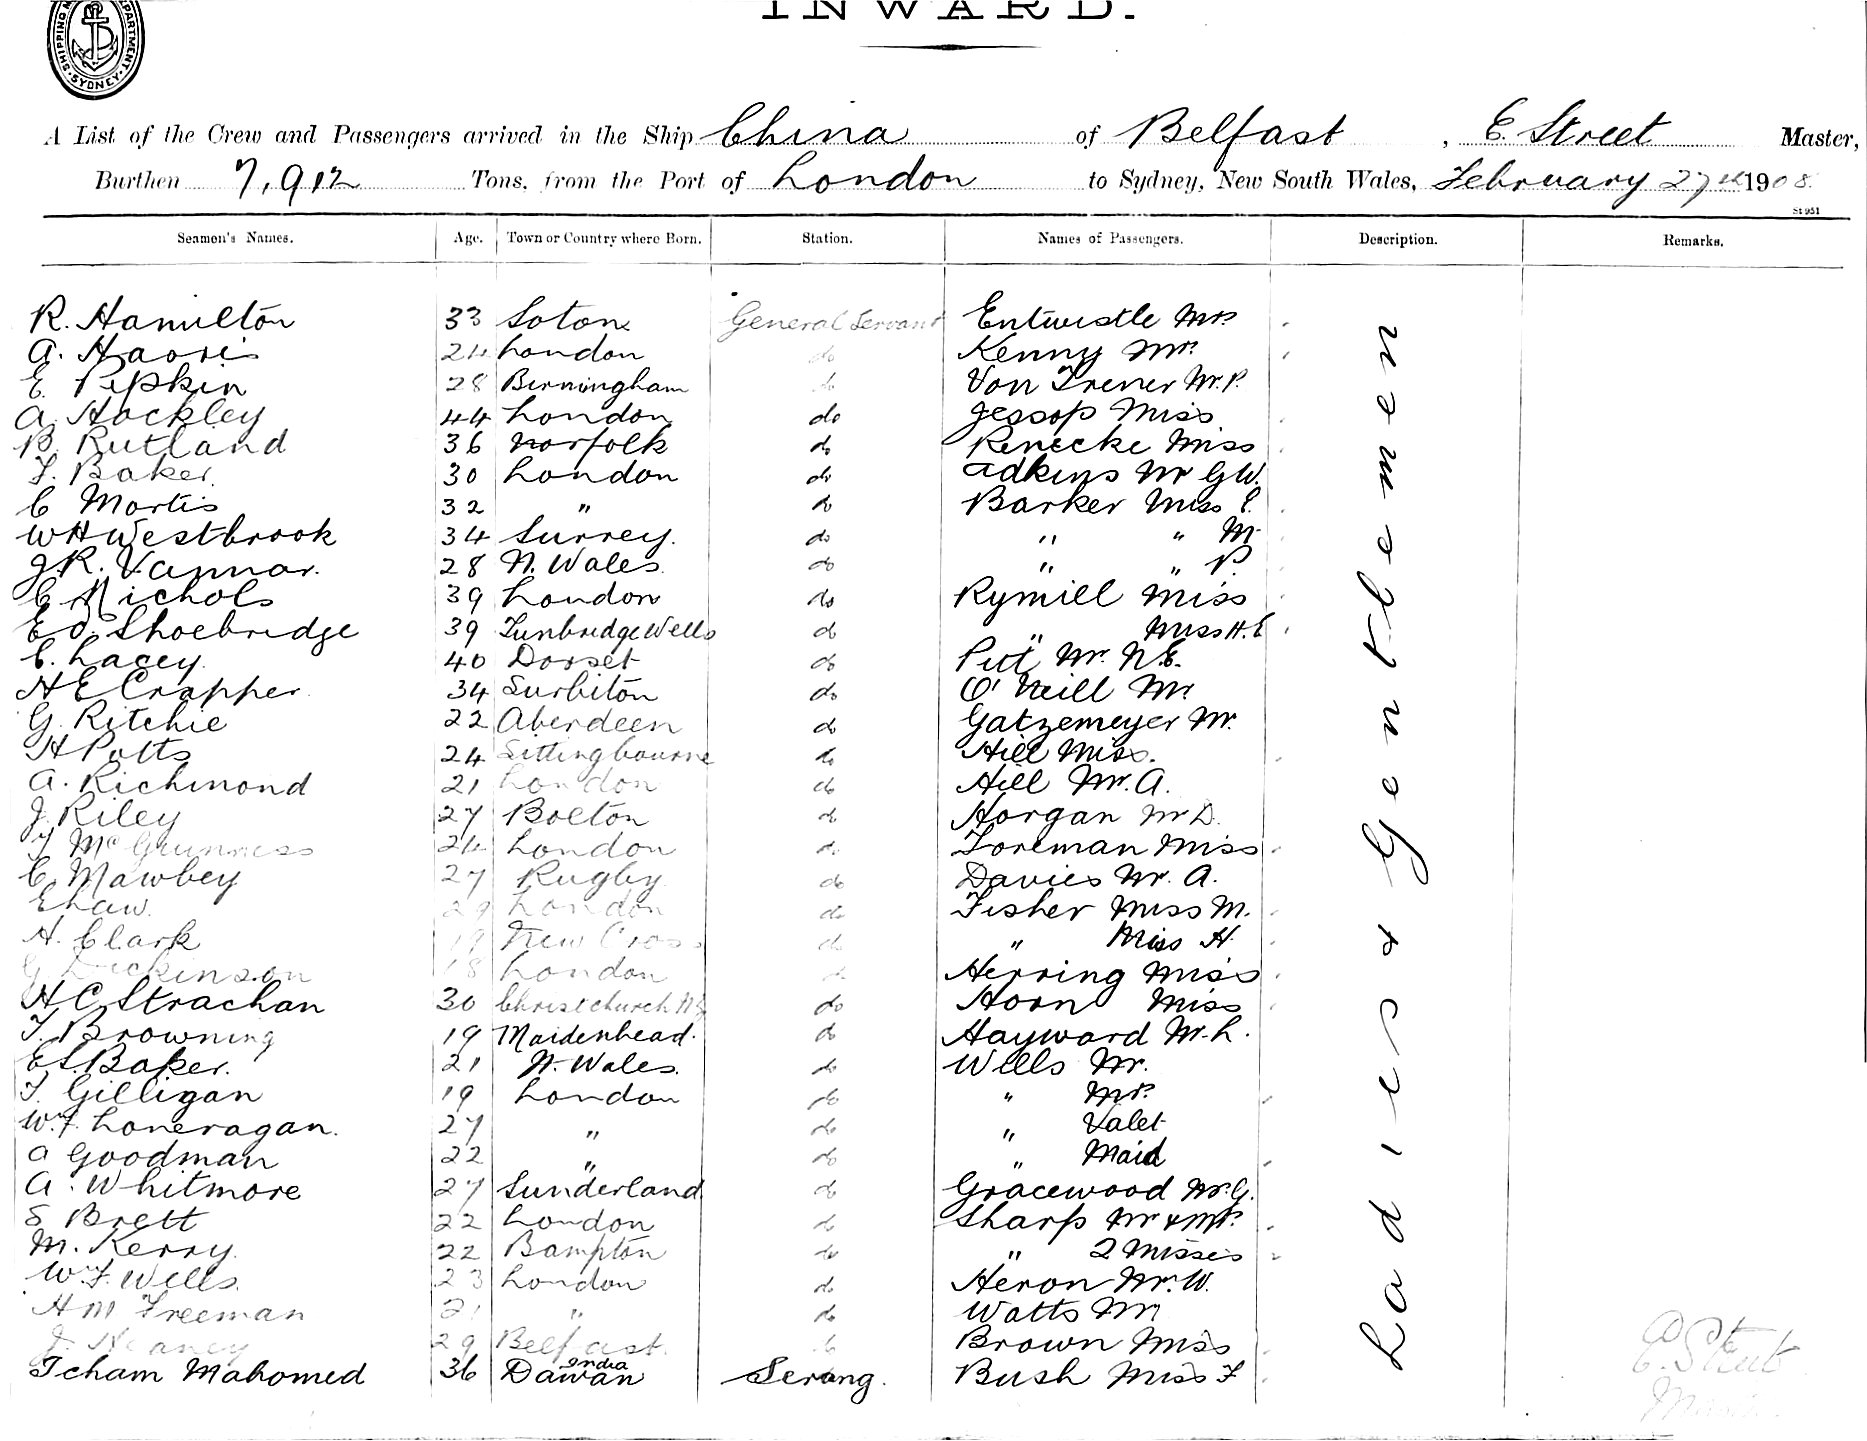 INWARD.
SHIPPING DEPARTMENT · SYDNEY ·
A List of the Crew and Passengers arrived in the Ship China of Belfast, E. Street Master,
Burthen 7,912 Tons, from the Port of London to Sydney, New South Wales, February 27th 1908.
St 951
Seamen's Names. Age. Town or Country where Born. Station. Names of Passengers. Description. Remarks.
R. Hamilton 33 Soton General Servant Entwistle Mrs
A. Harris 24 London do Kenny Mrs
E. Pipkin 28 Birmingham do Von Trener Mr P.
A. Hockley 44 London do Jessop Miss
B. Rutland 36 Norfolk do Renecke Miss
F. Baker 30 London do Adkins Mr G.W.
C Mortis 32 " do Barker Miss E.
W H Westbrook 34 Surrey. do " " M
J.R. Vannar. 28 N. Wales do " " P.
C Nichols 39 London do Rymill Miss
E O. Shoebridge 39 Tunbridge Wells do " Miss H.E
C. Lacey. 40 Dorset do Putt Mr. N.E.
H E Crapper 34 Surbiton do O'Neill Mr
G. Ritchie 22 Aberdeen do Gatzemeyer Mr.
H Potts 24 Sittingbourne do Hill Miss.
A. Richmond 21 London do Hill Mr. A.
J. Riley 27 Bolton do Horgan Mr D.
McGuinness 24 London do Foreman Miss
C. Mawbey 27 Rugby do Davies Mr. A.
E Law. 29 London do Fisher Miss M.
H. Clark 19 New Cross do " Miss H.
G Dickinson 18 London do Herring Miss
H C Strachan 30 Christchurch N.Z do Horn Miss
T. Browning 19 Maidenhead. do Hayward Mr. L.
E S. Baker. 21 N. Wales. do Wells Mr.
T. Gilligan 19 London do " Mrs.
W.F. Loneragan. 27 " do " Valet
A Goodman 22 " do " Maid
A. Whitmore 27 Sunderland do Gracewood Mr. G.
S Brett 22 London do Sharp Mr & Mrs.
M. Kerry. 22 Bampton do " 2 Misses
W. F. Wells. 23 London do Heron Mr. W.
H M Freeman 21 " do Watts Mr
J. Heaney 29 Belfast. do Brown Miss
Icham Mahomed 36 Dawan India Serang. Bush Miss F
Ladies & Gentlemen
E. Street
Master